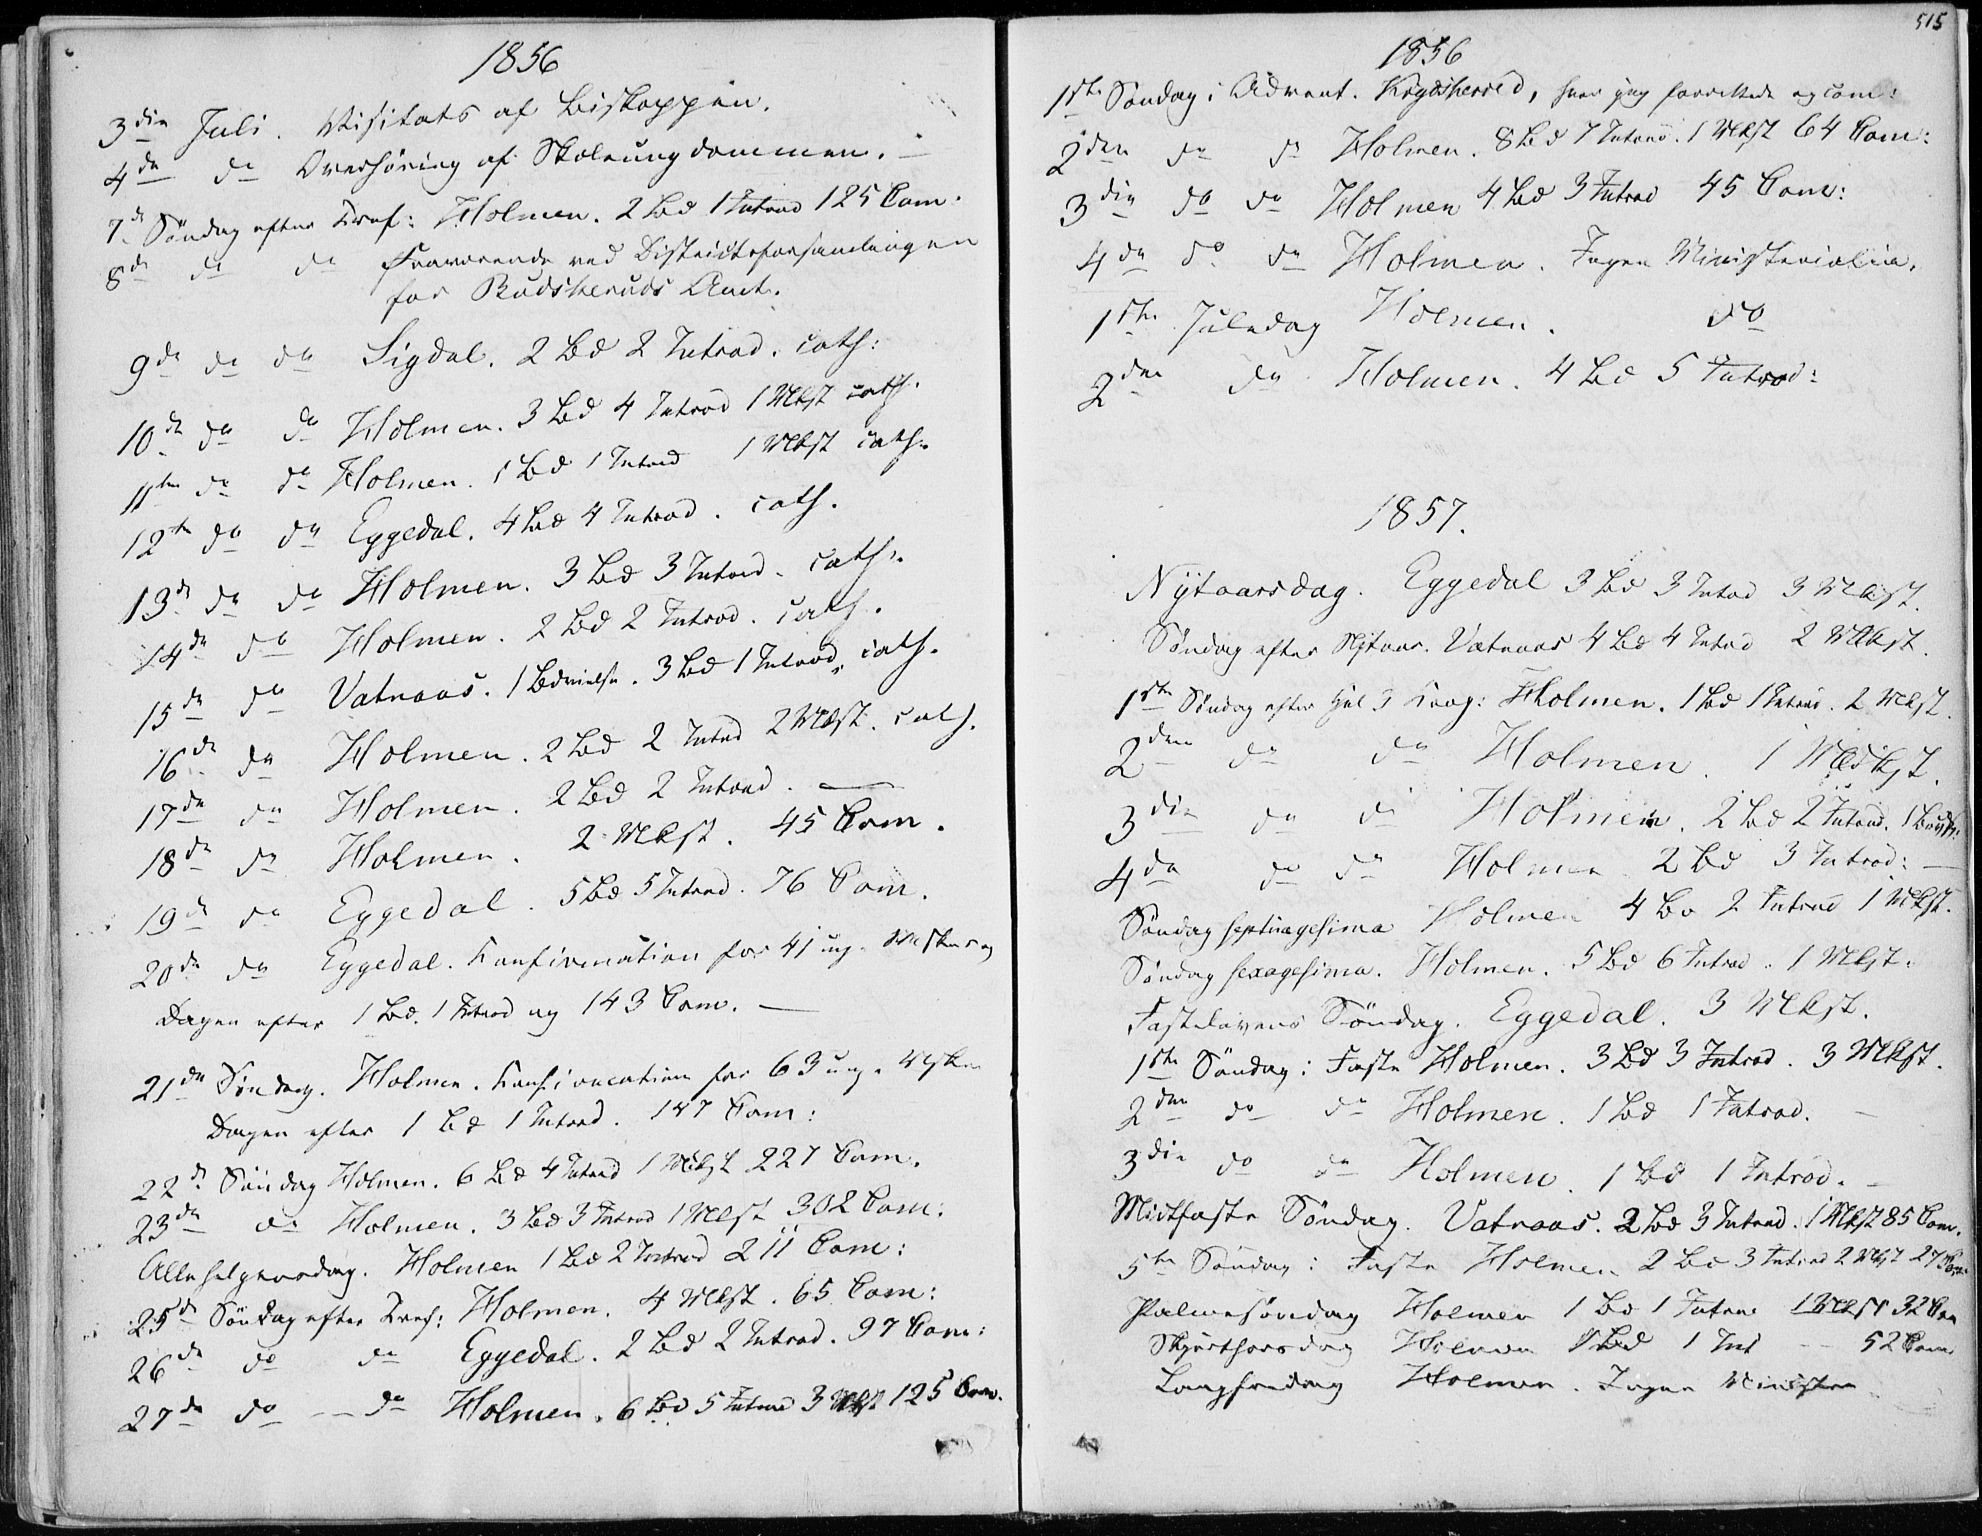 1856
3die Juli. Visitats af Biskoppen.
4de do Overhöring af Skoleungdommen. —
7de Söndag efter Tref: Holmen. 2 Bd 1 Introd 125 Com:
8de do do Fraværende ved Districtsforsamlingen
for Budskeruds Amt.
9de do do Sigdal. 2 Bd 2 Introd. cath:
10de do do Holmen. 3 Bd 4 Introd 1 Vlkst cath.
11te do do Holmen. 1 Bd 1 Introd 1 Vlkst cath.
12te do do Eggedal. 4 Bd 4 Introd. cath.
13de do do Holmen. 3 Bd 3 Introd. cath.
14de do Holmen. 2 Bd 2 Introd. cath.
15de do Vatnaas. 1 Bdvielse. 3 Bd 1 Introd. cath.
16de do Holmen. 2 Bd 2 Introd 2 Vlkst. cath.
17de do Holmen. 2 Bd 2 Introd. —
18de do Holmen. 2 Vlkst. 45 Com.
19de do Eggedal. 5 Bd 5 Introd. 76 Com.
20de do Eggedal. Konfirmation for 41 ung.
Dagen efter 1 Bd. 1 Introd og 143 Com. —
21de Söndag. Holmen. Konfirmation for 63 unge
Dagen efter 1 Bd 1 Introd. 147 Com:
22de Söndag Holmen. 6 Bd 4 Introd 1 Vlkst 227 Com.
23de do Holmen. 3 Bd 3 Introd 1 Vlkst 302 Com:
Allehelgensdag. Holmen 1 Bd 2 Introd 211 Com:
25de Söndag efter Tref: Holmen. 4 Vlkst. 65 Com:
26de do do Eggedal. 2 Bd 2 Introd. 97 Com:
27de do — do Holmen. 6 Bd 5 Introd 3 Vlkst 125 Com.
515
1856
1ste Söndag i Advent. Krydsherred, hvor jeg forrettede og com:
2den do do Holmen. 8 Bd 7 Introd. 1 Vlkst 64 Com:
3die do do Holmen 4 Bd 3 Introd 45 Com:
4de do do Holmen. Ingen Ministerialia.
1ste Juledag Holmen. do
2den do Holmen. 4 Bd 5 Introd:
1857.
Nytaarsdag. Eggedal 3 Bd 3 Introd 3 Vlkst.
Söndag efter Nytaar. Vatnaas 4 Bd 4 Introd 2 Vlkst.
1ste Söndag efter Hel 3 Kong: Holmen. 1 Bd 1 Introd. 2 Vlkst.
2den do do Holmen. 1 Vlkst.
3die do do Holmen. 2 Bd 2 Introd.
4de do do Holmen 2 Bd 3 Introd: —
Söndag septuagesima Holmen 4 Bd 2 Introd 1 Vlkst.
Söndag sexagesima. Holmen. 5 Bd 6 Introd. 1 Vlkst.
Fastelavens Söndag. Eggedal. 3 Vlkst.
1ste Söndag i Faste Holmen. 3 Bd 3 Introd. 3 Vlkst.
2den do do Holmen. 1 Bd 1 Introd. —
3die do do Holmen. 1 Bd 1 Introd. —
Midtfaste Söndag. Vatnaas. 2 Bd 3 Introd. 1 Vlkst 85 Com.
5te Söndag i Faste Holmen 2 Bd 3 Introd 2 Vlkst 27 Com:
Palmesöndag Holmen 1 Bd 1 Introd 1 Vlkst 32 Com
Skjærthorsdag Holmen 1 Bd 1 Int — 52 Com
Langfredag Holmen. Ingen Ministr